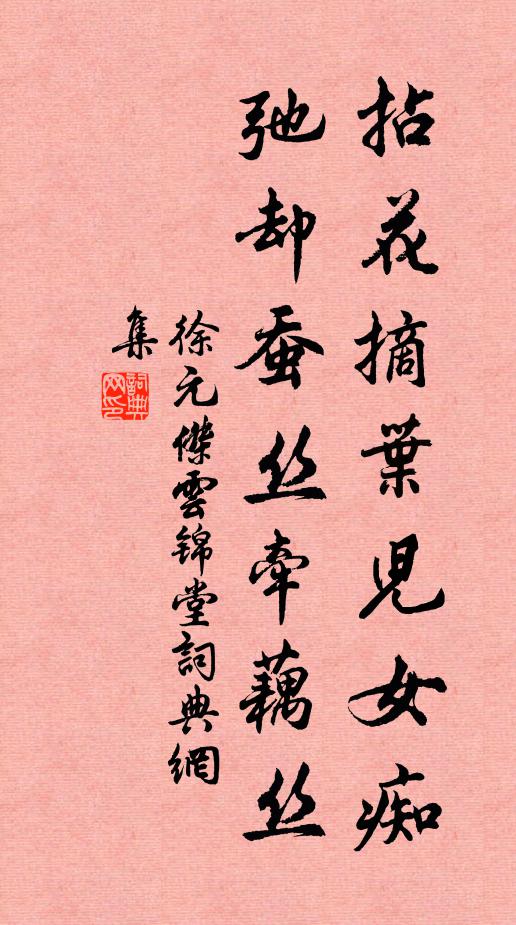 拈花摘葉兒女痴
弛却蚕丝牵藕丝
徐元傑雲锦堂詞典網
集
詞典网印